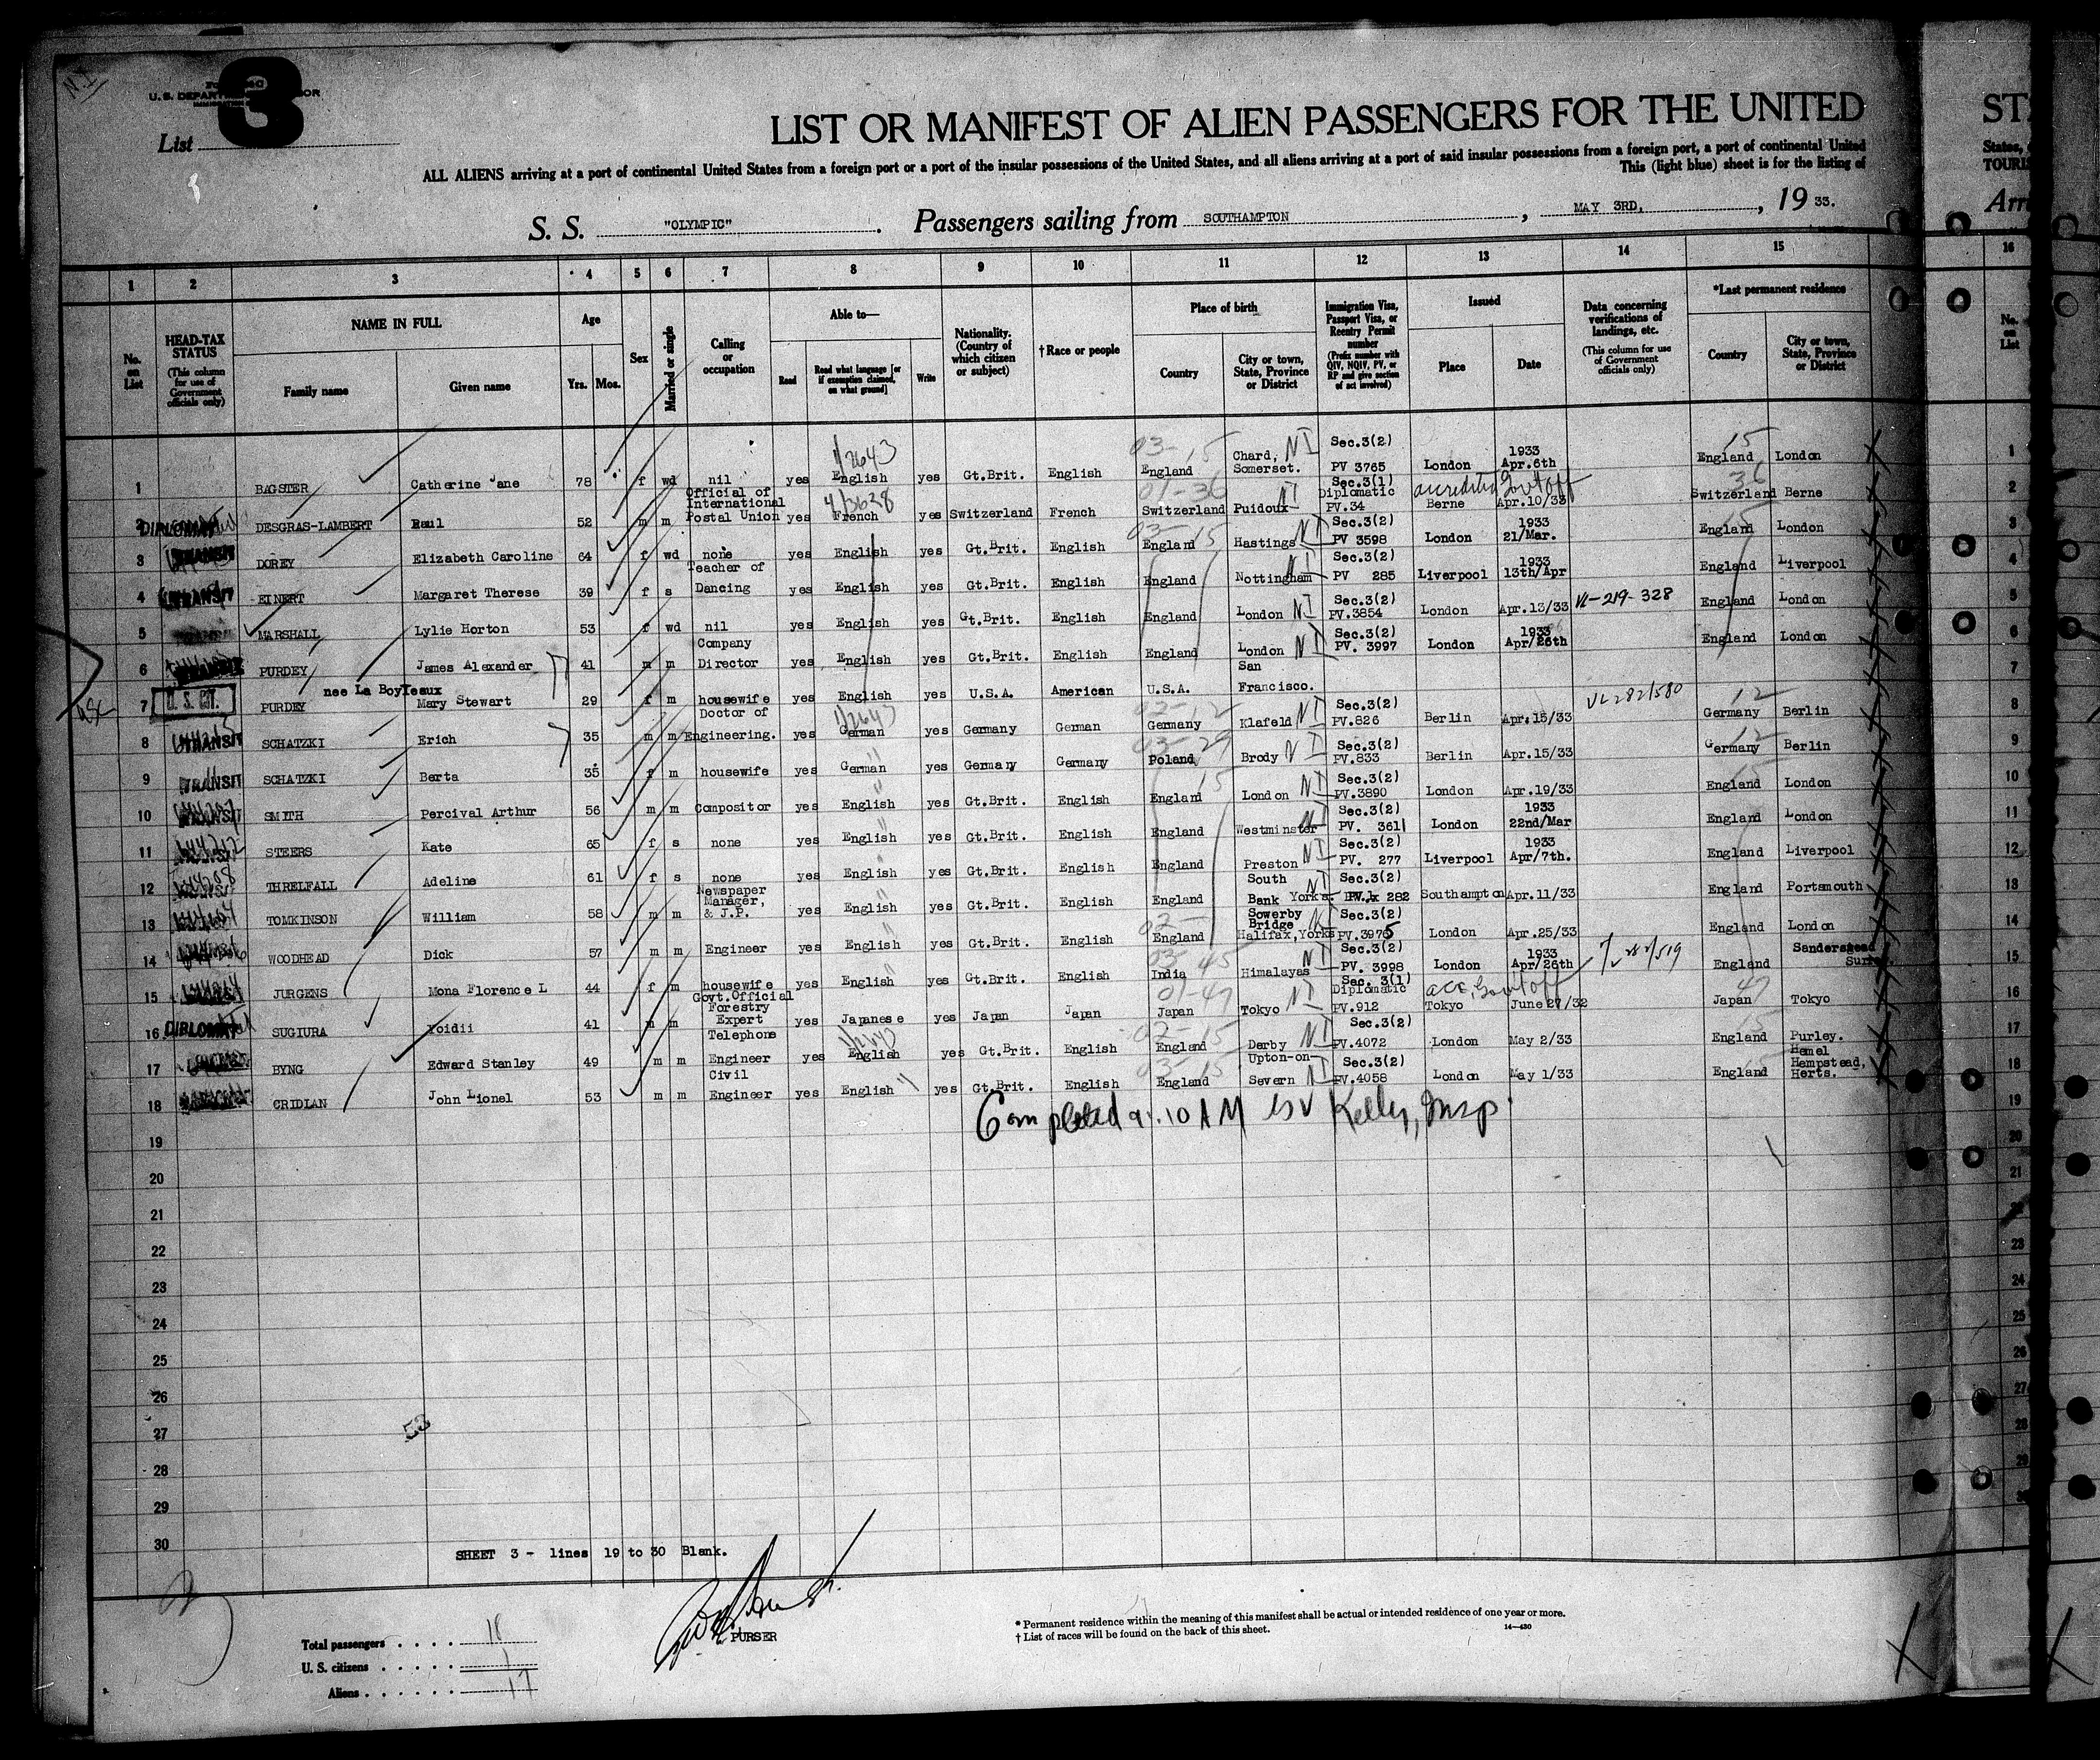 3
U. S. DEPARTMENT OF LABOR
List
LIST OR MANIFEST OF ALIEN PASSENGERS FOR THE UNITED
ST
ALL ALIENS arriving at a port of continental United States from a foreign port or a port of the insular possessions of the United States, and all aliens arriving at a port of said insular possessions from a foreign port, a port of continental United
States,
This (light blue) sheet is for the listing of
TOURI
S. S. "OLYMPIC". Passengers sailing from SOUTHAMPTON, MAY 3RD, 1933.
Arri
1 2 3 4 5 6 7 8 9 10 11 12 13 14 15 16
No. on List
HEAD-TAX STATUS (This column for use of Government officials only)
NAME IN FULL Family name Given name
Age Yrs. Mos.
Sex
Married or single
Calling or occupation
Able to— Read Read what language [or if exemption claimed, on what ground] Write
Nationality. (Country of which citizen or subject)
†Race or people
Place of birth Country City or town, State, Province or District
Immigration Visa, Passport Visa, or Reentry Permit number (Prefix number with QIV, NQIV, PV, or RP and give section of act involved)
Issued Place Date
Data concerning verifications of landings, etc. (This column for use of Government officials only)
*Last permanent residence Country City or town, State, Province or District
No. on List
1 BAGSTER Catherine Jane 78 f wd nil yes English yes Gt.Brit. English England Chard, Somerset. NI Sec.3(2) PV 3765 London 1933 Apr.6th England London 1
2 DIPLOMAT DESGRAS-LAMBERT Raul 52 m m Official of International Postal Union yes French yes Switzerland French Switzerland Puidoux NI Sec.3(1) Diplomatic PV.34 accredited Govt off Berne Apr.10/33 Switzerland Berne 2
3 TRANSIT DOREY Elizabeth Caroline 64 f wd none yes English yes Gt.Brit. English England Hastings NI Sec.3(2) PV 3598 London 1933 21/Mar. England London 3
4 TRANSIT EINERT Margaret Therese 39 f s Teacher of Dancing yes English yes Gt.Brit. English England Nottingham NI Sec.3(2) PV 285 Liverpool 1933 13th/Apr England Liverpool 4
5 MARSHALL Lylie Horton 53 f wd nil yes English yes Gt.Brit. English England London NI Sec.3(2) PV.3854 London Apr.13/33 VL-219-328 England London 5
6 TRANSIT PURDEY James Alexander 41 m m Company Director yes English yes Gt.Brit. English England London NI Sec.3(2) PV. 3997 London 1933 Apr/26th England London 6
7 U. S. CIT. PURDEY nee La Boyteaux Mary Stewart 29 f m housewife yes English yes U.S.A. American U.S.A. San Francisco. 7
8 TRANSIT SCHATZKI Erich 35 m m Doctor of Engineering. yes German yes Germany German Germany Klafeld NI Sec.3(2) PV.826 Berlin Apr.15/33 VL 282/580 Germany Berlin 8
9 TRANSIT SCHATZKI Berta 35 f m housewife yes German yes Germany Germany Poland Brody NI Sec.3(2) PV.833 Berlin Apr.15/33 Germany Berlin 9
10 SMITH Percival Arthur 56 m m Compositor yes English yes Gt.Brit. English England London NI Sec.3(2) PV.3890 London Apr.19/33 England London 10
11 STEERS Kate 65 f s none yes English yes Gt.Brit. English England Westminster NI Sec.3(2) PV. 3611 London 1933 22nd/Mar England London 11
12 THRELFALL Adeline 61 f s none yes English yes Gt.Brit. English England Preston NI Sec.3(2) PV. 277 Liverpool 1933 Apr/7th. England Liverpool 12
13 TOMKINSON William 58 m m Newspaper Manager, & J.P. yes English yes Gt.Brit. English England South Bank Yorks. NI Sec.3(2) 282 Southampton Apr.11/33 England Portsmouth 13
14 WOODHEAD Dick 57 m m Engineer yes English yes Gt.Brit. English England Sowerby Bridge Halifax,Yorks Sec.3(2) PV.3975 London Apr.25/33 England London 14
15 JURGENS Mona Florence L 44 f m housewife yes English yes Gt.Brit. English India Himalayas NI Sec.3(2) PV. 3998 London 1933 Apr/26th England Sanderstead Surrey. 15
16 DIPLOMAT SUGIURA Yoidii 41 m m Govt.Official Forestry Expert yes Japanese yes Japan Japan Japan Tokyo NI Sec. 3(1) Diplomatic PV.912 acc. Govt off Tokyo June 27/32 Japan Tokyo 16
17 BYNG Edward Stanley 49 m m Telephone Engineer yes English yes Gt.Brit. English England Derby NI Sec.3(2) PV.4072 London May 2/33 England Purley. 17
18 CRIDLAN John Lionel 53 m m Civil Engineer yes English yes Gt.Brit. English England Upton-on-Severn NI Sec.3(2) PV.4058 London May 1/33 England Hemel Hempstead, Herts. 18
Completed 9.10 AM Kelly, Insp.
19
20
21
22
23
24
25
26
27
28
29
30
53
SHEET 3 - lines 19 to 30 Blank.
PURSER
Total passengers . . . . 18
U. S. citizens . . . . . 1
Aliens . . . . . . 17
* Permanent residence within the meaning of this manifest shall be actual or intended residence of one year or more.
† List of races will be found on the back of this sheet.
14—430